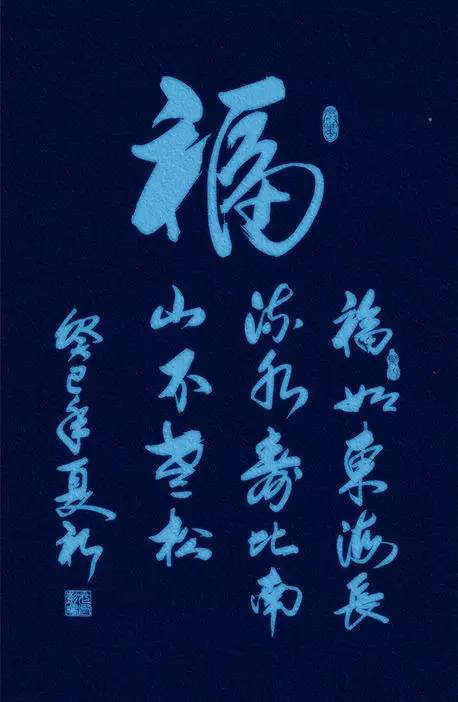 福
福如東海長
流水壽比南
山不老松
癸巳年夏初